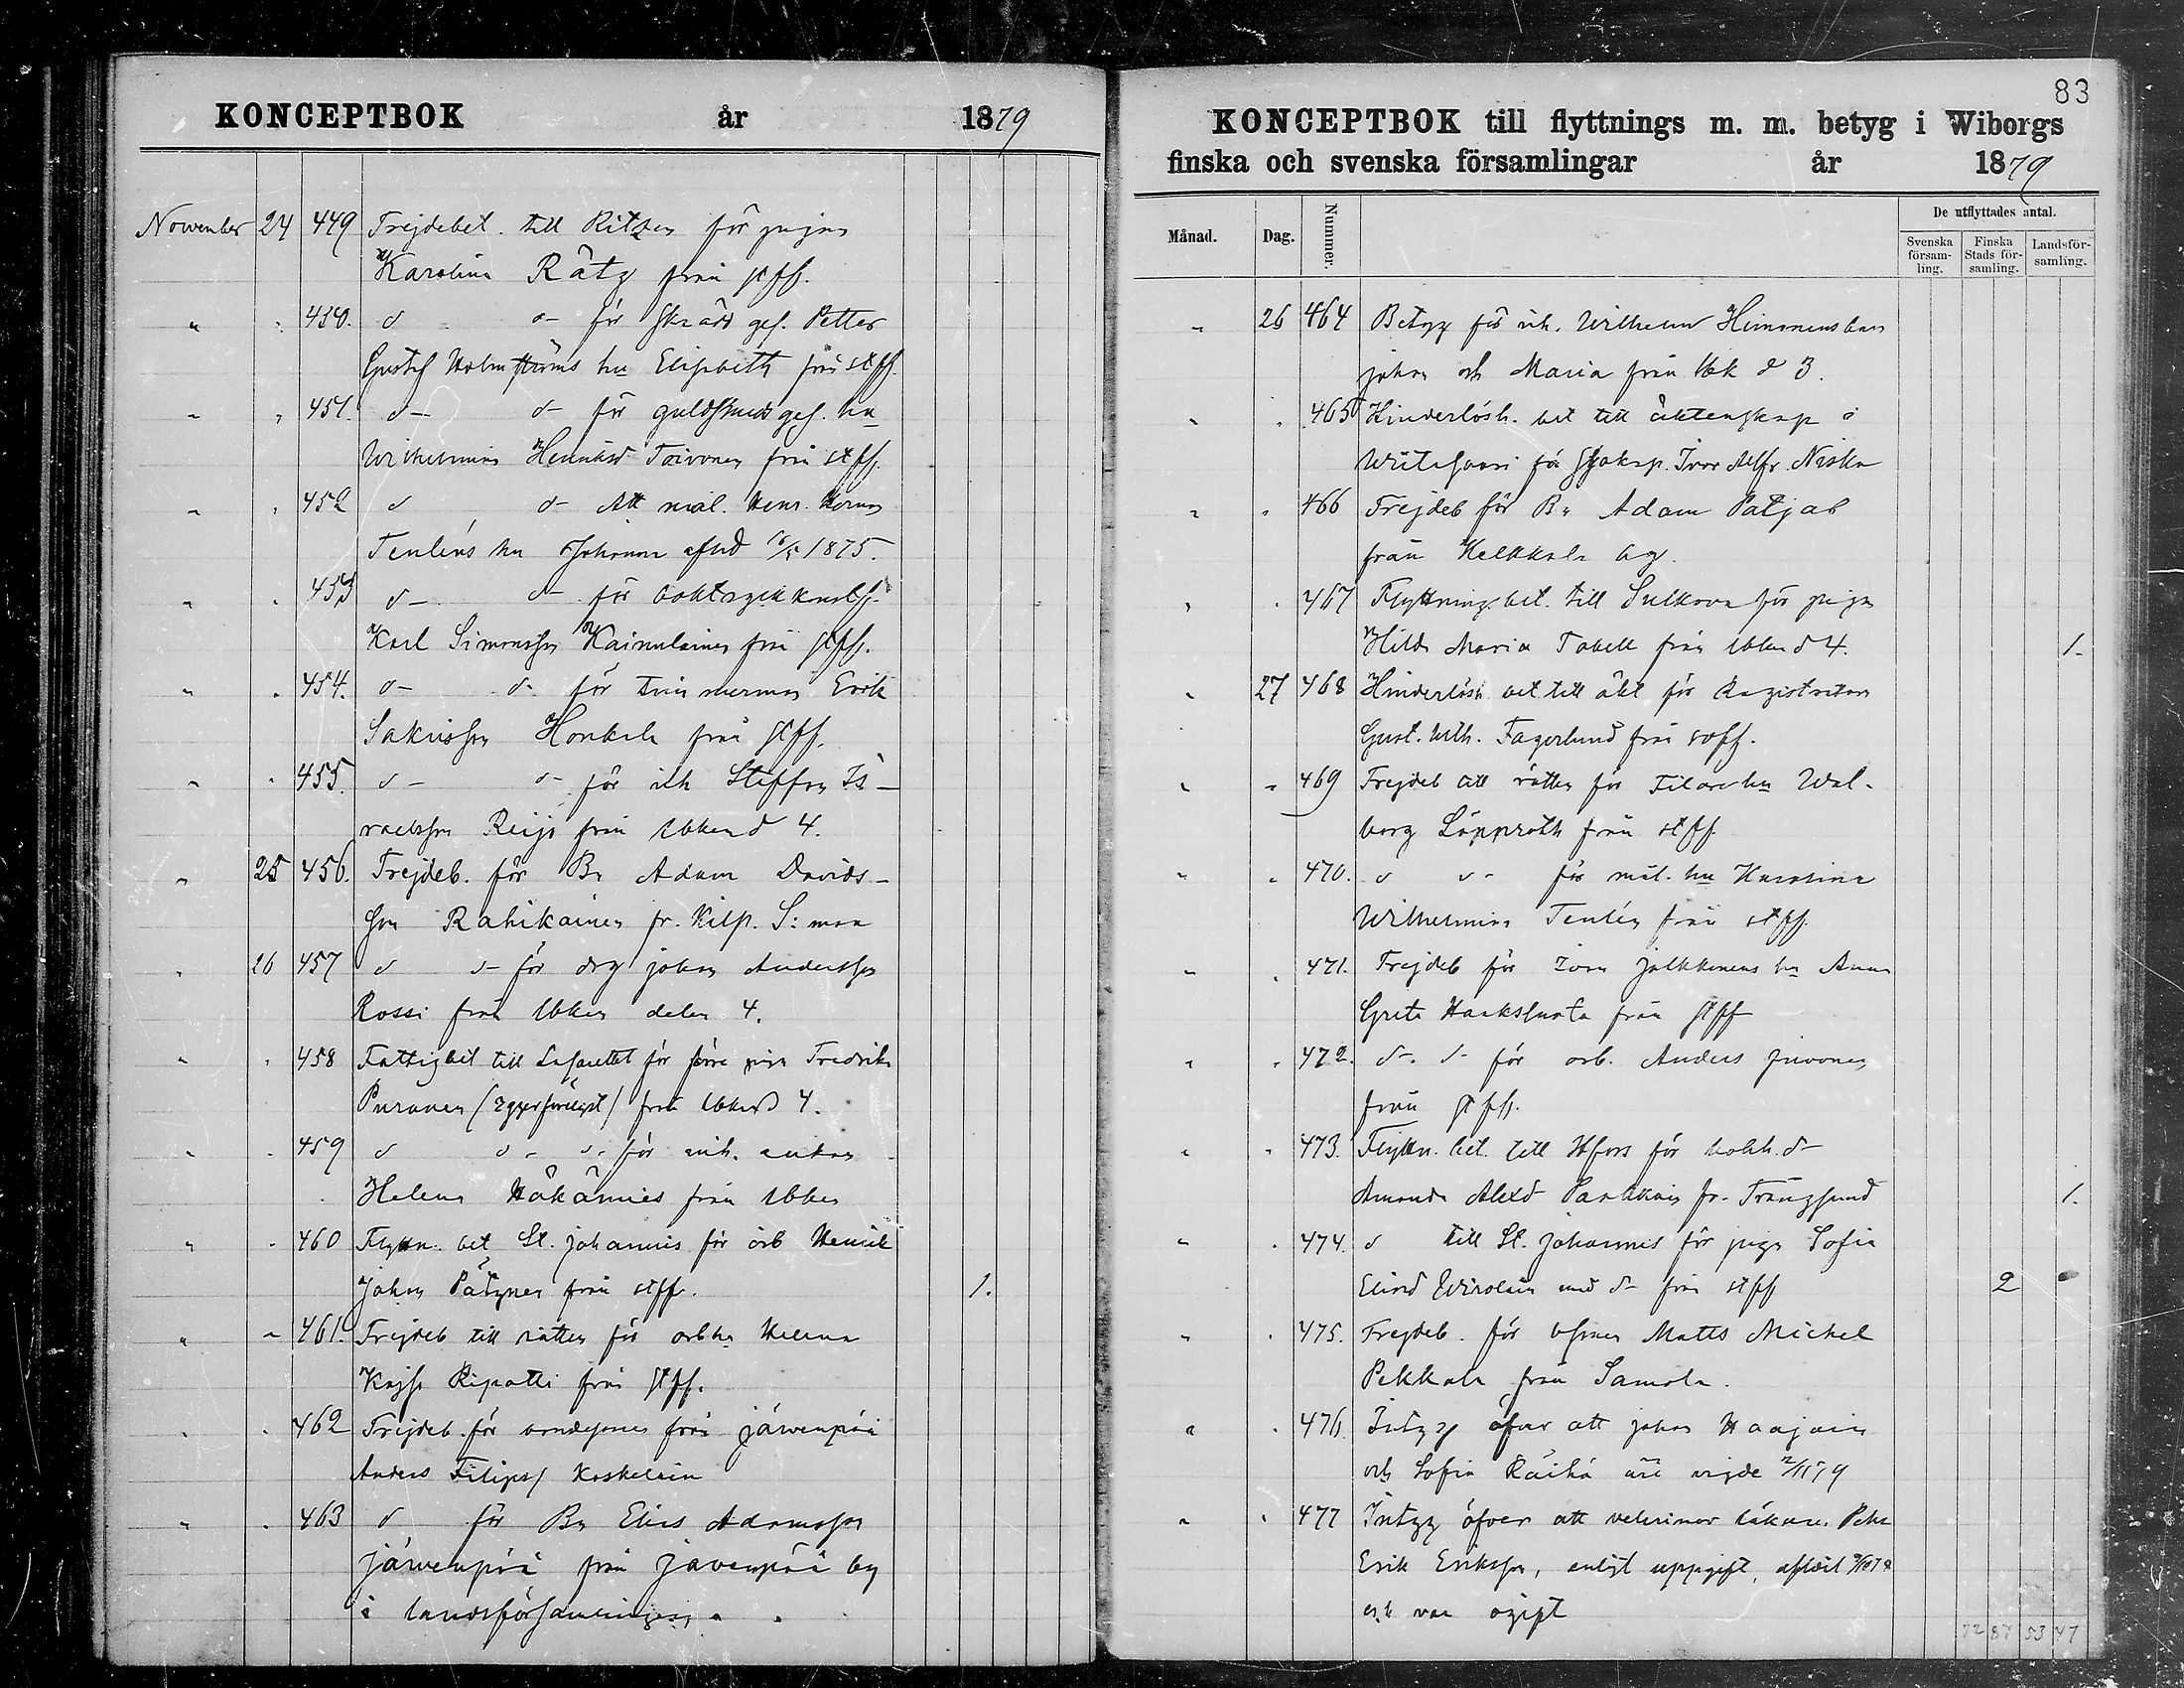 KONCEPTBOK år 1879
November 24 449 Frejdebet. till Rätten för pigan
Karolina Rätz från stff.
" " 450. d d- för skrädd ges. Petter
Gustaf Holmströms hu Elisabeth från stff.
" " 451. d- d- för guldsmeds ges. hu
Wilhelmina Henriksd Toivonen från stff.
" " 452 d d- att mål. Henr. Herman
Tenléns hu Johanna afled 10/5 1875.
" " 453 d- d- för boktryckkonstf.
Karl Simonsson Kainulainen från stff.
" " 454. d- d- för timmerman Erik
Sakrisson Honkela från stff.
" " 455. d- d- för inh Steffan Is-
raelsson Reijo från Ubken d 4.
" 25 456. Frejdeb. för Bn Adam Davids-
son Rahikainen fr. Kilp. S:maa
" 26 457 d d- för drg Johan Andersson
Rossi från Ubken delen 4.
" " 458 Fattigbet till Lasarettet för förre pigan Fredrika
Puranen från Ubken d 4.
" " 459 d d- d- för inh. enkan
Helena Hökänies från Ubken
" " 460 Flyttn. bet St. Johannis för arb Henrik
Johan Pätynen från stff. 1.
" " 461. Frejdeb till rätten för arbhu Helena
Kajsa Ripatti från stff.
" " 462 Frejdeb. för bondesonen från Järvenpää
Anders Filips/ Koskelain
" " 463 d för Bn Elias Adamsson
Järvenpää från Javenpää by
i landsförsamlingen
83
KONCEPTBOK till flyttnings m. m. betyg i Wiborgs
finska och svenska församlingar år 1879
Månad. Dag. Nummer. De utflyttades antal.
Svenska försam-ling. Finska Stads för-samling. Landsför-samling.
" 26 464 Betyg för inh. Wilhelm Himmanens barn
Johan och Maria från Ubk d 3.
" " 465 Hinderlösh. bet till äktenskap i
Wiitasaari för Ivar Alfr. Niska
" " 466 Frejdeb för Bn Adam Patjas
från Kelkkala by.
" " 467 Flyttnings bet. till Sulkava för pigan
Hilda Maria Tabell från Ubken d 4. 1.
" 27 468 Hinderlösh bet till äkt för Registratorn
Gust. Wilh. Fagerlund från svff.
" " 469 Frejdeb till rätten för Filare hu Wal-
borg Löppröth från stff
" " 470. d d- för mål. hu Karolina
Wilhelmina Tenlén från stff.
" " 471. Frejdeb för Ivan Jalkkanens hu Anna
Greta Haaksluoto från stff
" " 472. d- d- för arb. Anders Juvonen
från stff.
" " 473. Flyttn. bet. till Hfors för bokh. d-
Amanda Alexd- Parkkain fr. Trångsund 1.
" " 474. d till St. Johannes för pigan Sofia
Eliasd Wirolain med d- från stff 2
" " 475. Frejdeb. för bsonen Matts Michel
Pekkala från Samola.
" " 476. Intyg öfver att Johan Haajain
och Sofia Räihä äro vigde 2/11 79
" " 477 Intyg öfver att veterinar läkare. Pehr
Erik Eriksson, enligt uppgift, aflidit
och var ogift
72 87 53 47